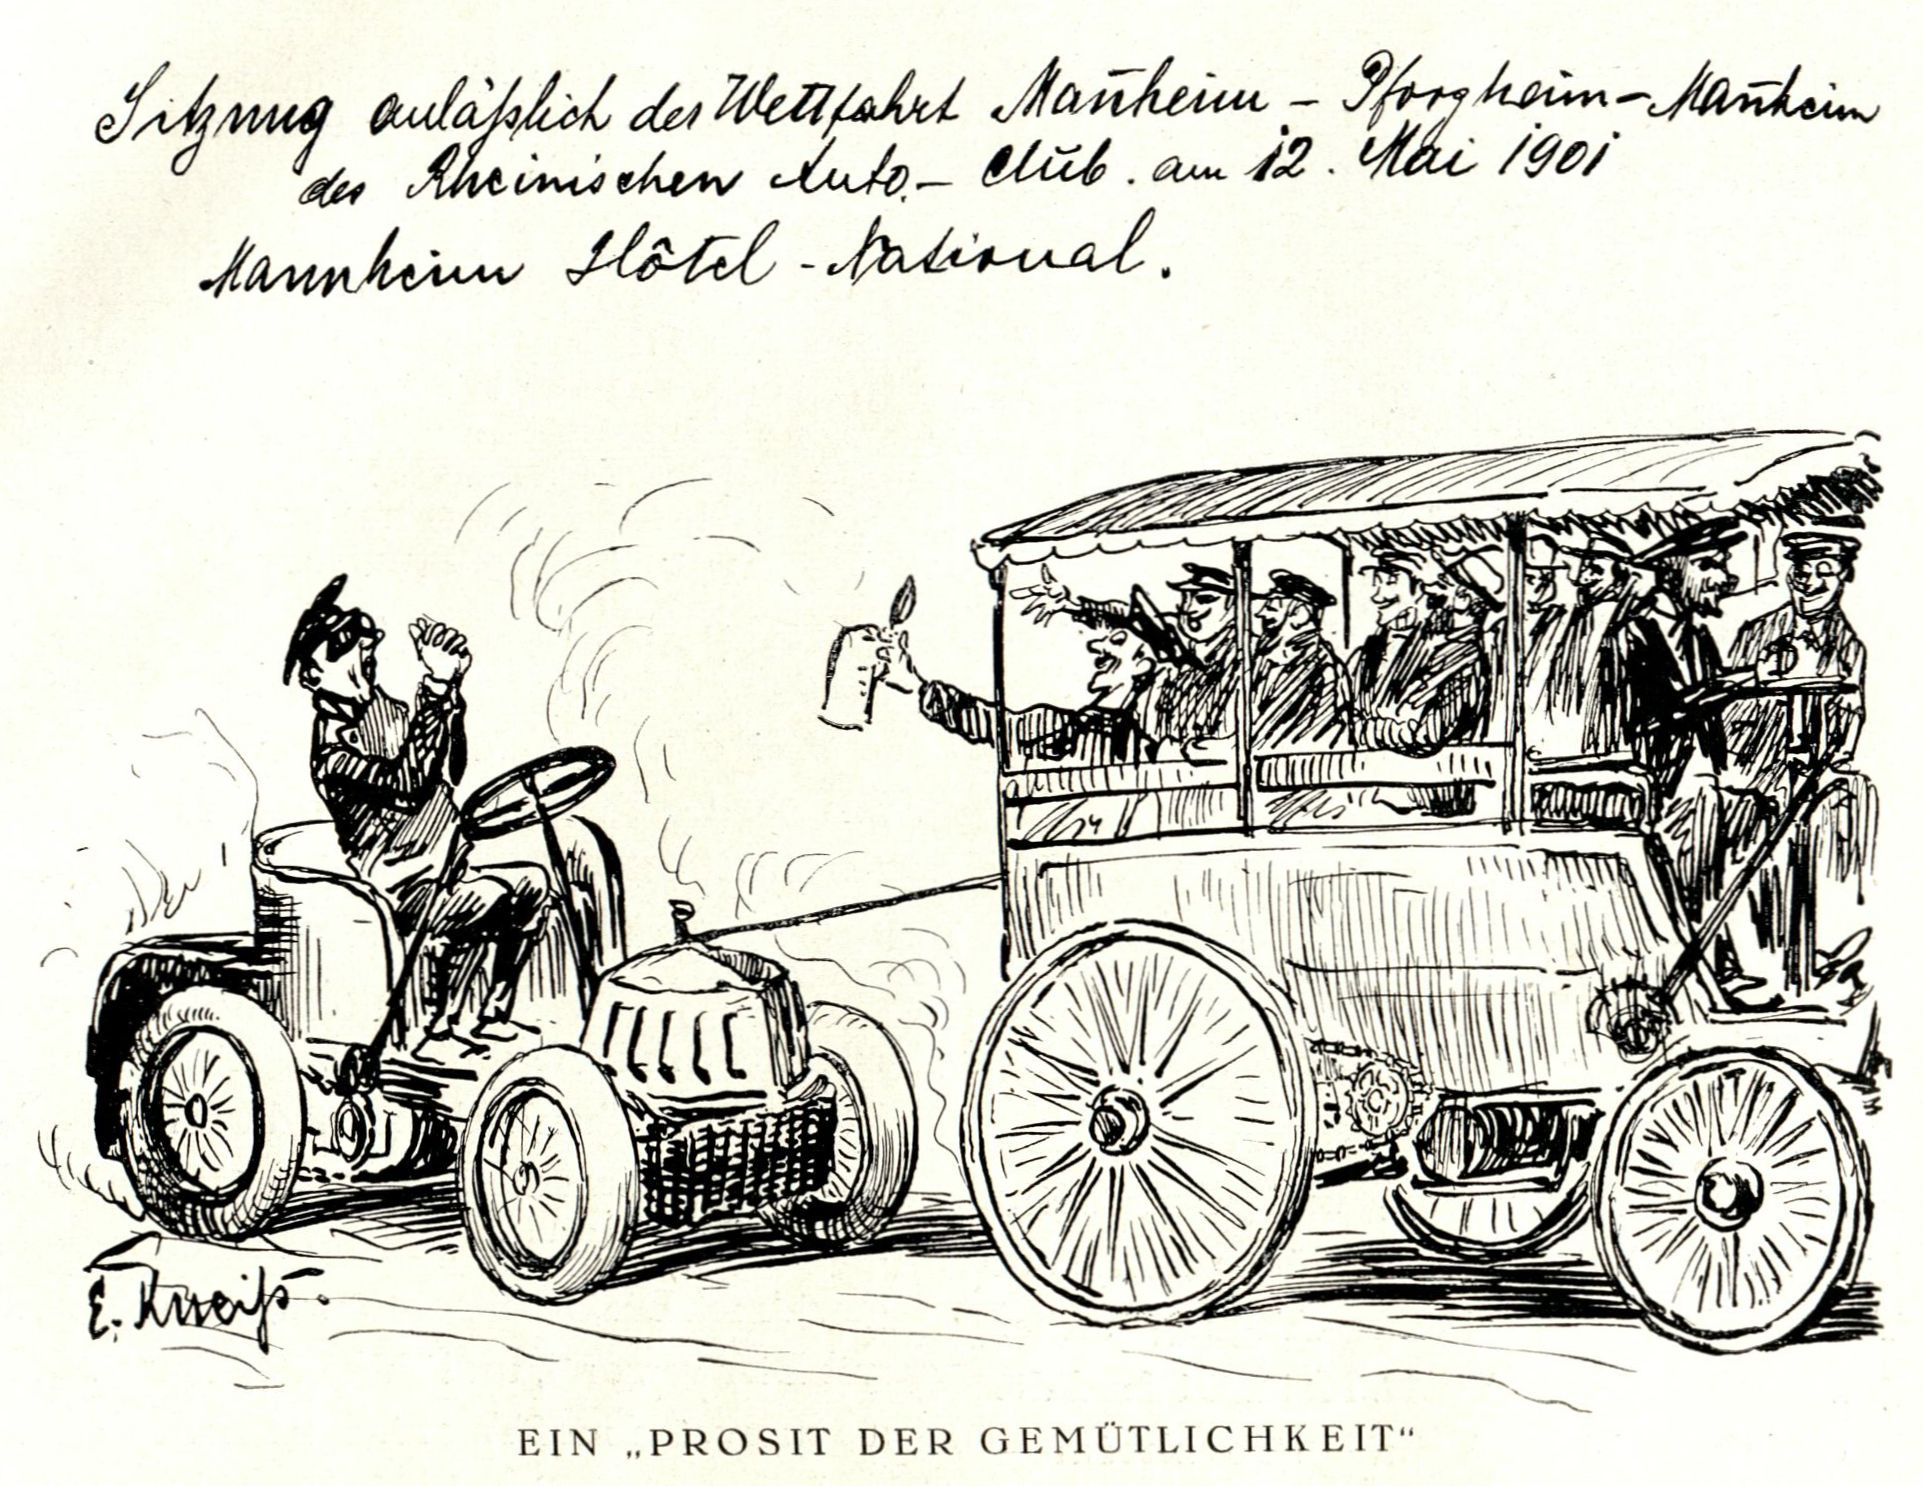 Sitzung anläßlich der Wettfahrt Man̄heim – Pforzheim – Man̄heim
des Rheinischen Auto.– Club. am 12. Mai 1901
Mannheim Hôtel - National.
E. Kneiß.
EIN „PROSIT DER GEMÜTLICHKEIT“